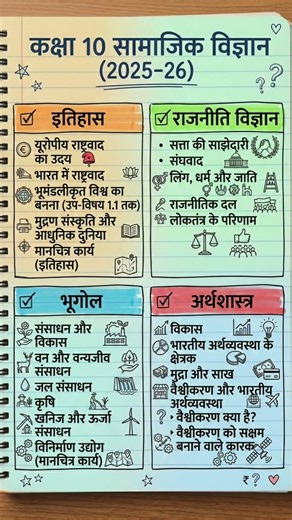 कक्षा 10 सामाजिक विज्ञान
(2025-26)
इतिहास
यूरोपीय राष्ट्रवाद
का उदय
भारत में राष्ट्रवाद
भूमंडलीकृत विश्व का
बनना (उप-विषय 1.1 तक)
मुद्रण संस्कृति और
आधुनिक दुनिया
मानचित्र कार्य
(इतिहास)
राजनीति विज्ञान
• सत्ता की साझेदारी
• संघवाद
लिंग, धर्म और जाति
राजनीतिक दल
लोकतंत्र के परिणाम
भूगोल
संसाधन और
विकास
वन और वन्यजीव
संसाधन
जल संसाधन
कृषि
खनिज और ऊर्जा
संसाधन
विनिर्माण उद्योग
(मानचित्र कार्य)
अर्थशास्त्र
विकास
भारतीय अर्थव्यवस्था के
क्षेत्रक
मुद्रा और साख
वैश्वीकरण और भारतीय
अर्थव्यवस्था
› वैश्वीकरण क्या है?
› वैश्वीकरण को सक्षम
बनाने वाले कारक
₹ ?